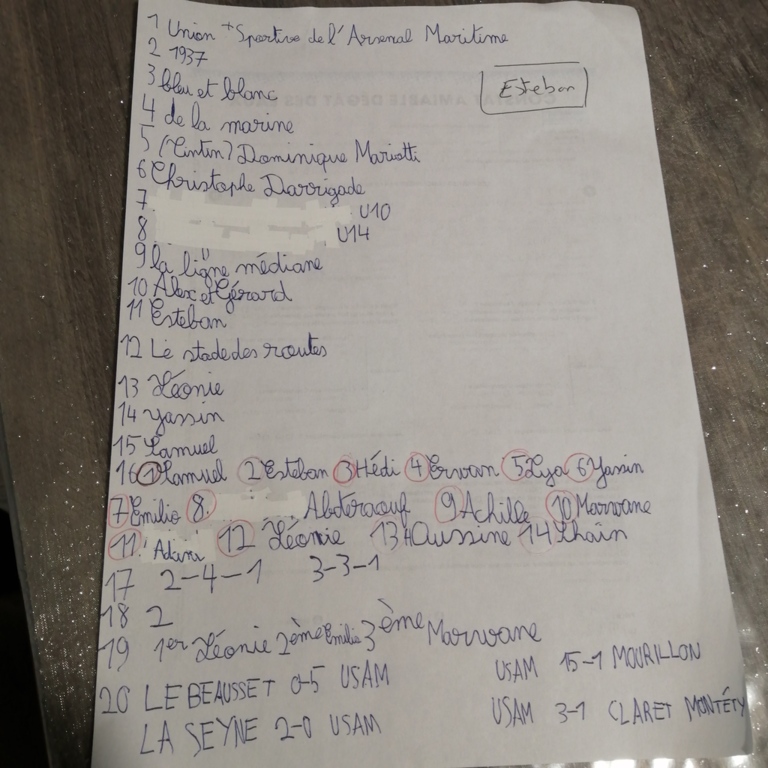 1 Union Sportive de l'Arsenal Maritime
2 1937
Esteban
3 bleu et blanc
4 de la marine
5 (Tintin) Dominique Mariotti
6 Christophe Darrigade
7 U10
8 U14
9 la ligne médiane
10 Alex et Gérard
11 Esteban
12 Le stade des routes
13 Léonie
14 Yassin
15 Samuel
16 1 Samuel 2 Esteban 3 Hédi 4 Erwan 5 Lya 6 Yassin
7 Emilio 8. Abderaouf 9 Achille 10 Marwane
11. 12 Léonie 13 HOussine 14
17 2-4-1 3-3-1
18 2
19 1er Léonie 2ème Emilio 3ème Marwane
20 LE BEAUSSET 0-5 USAM USAM 15-1 MOURILLON
LA SEYNE 2-0 USAM USAM 3-1 CLARET MONTÉTY